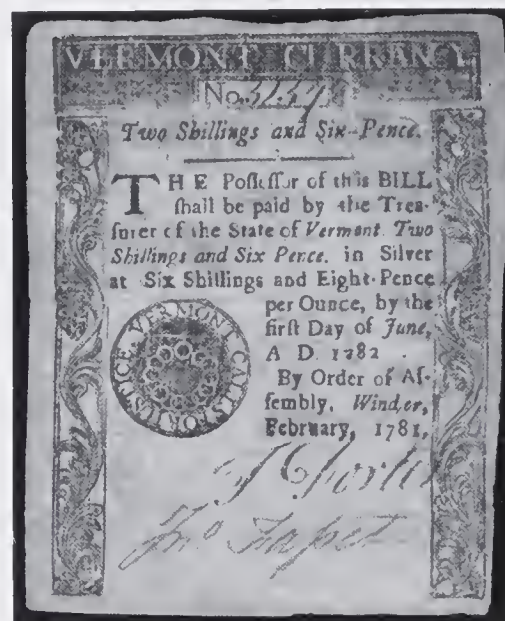 VERMONT CURRENCY.
No.
Two Shillings and Six-Pence.
THE Poſſeſſor of this BILL
ſhall be paid by the Trea-
ſurer of the State of Vermont Two
Shillings and Six Pence, in Silver
at Six Shillings and Eight-Pence
per Ounce, by the
firſt Day of June,
A D. 1782 .
By Order of Aſ-
ſembly, Windſor,
February, 1781,
VERMONT CALLS FOR JUSTICE.